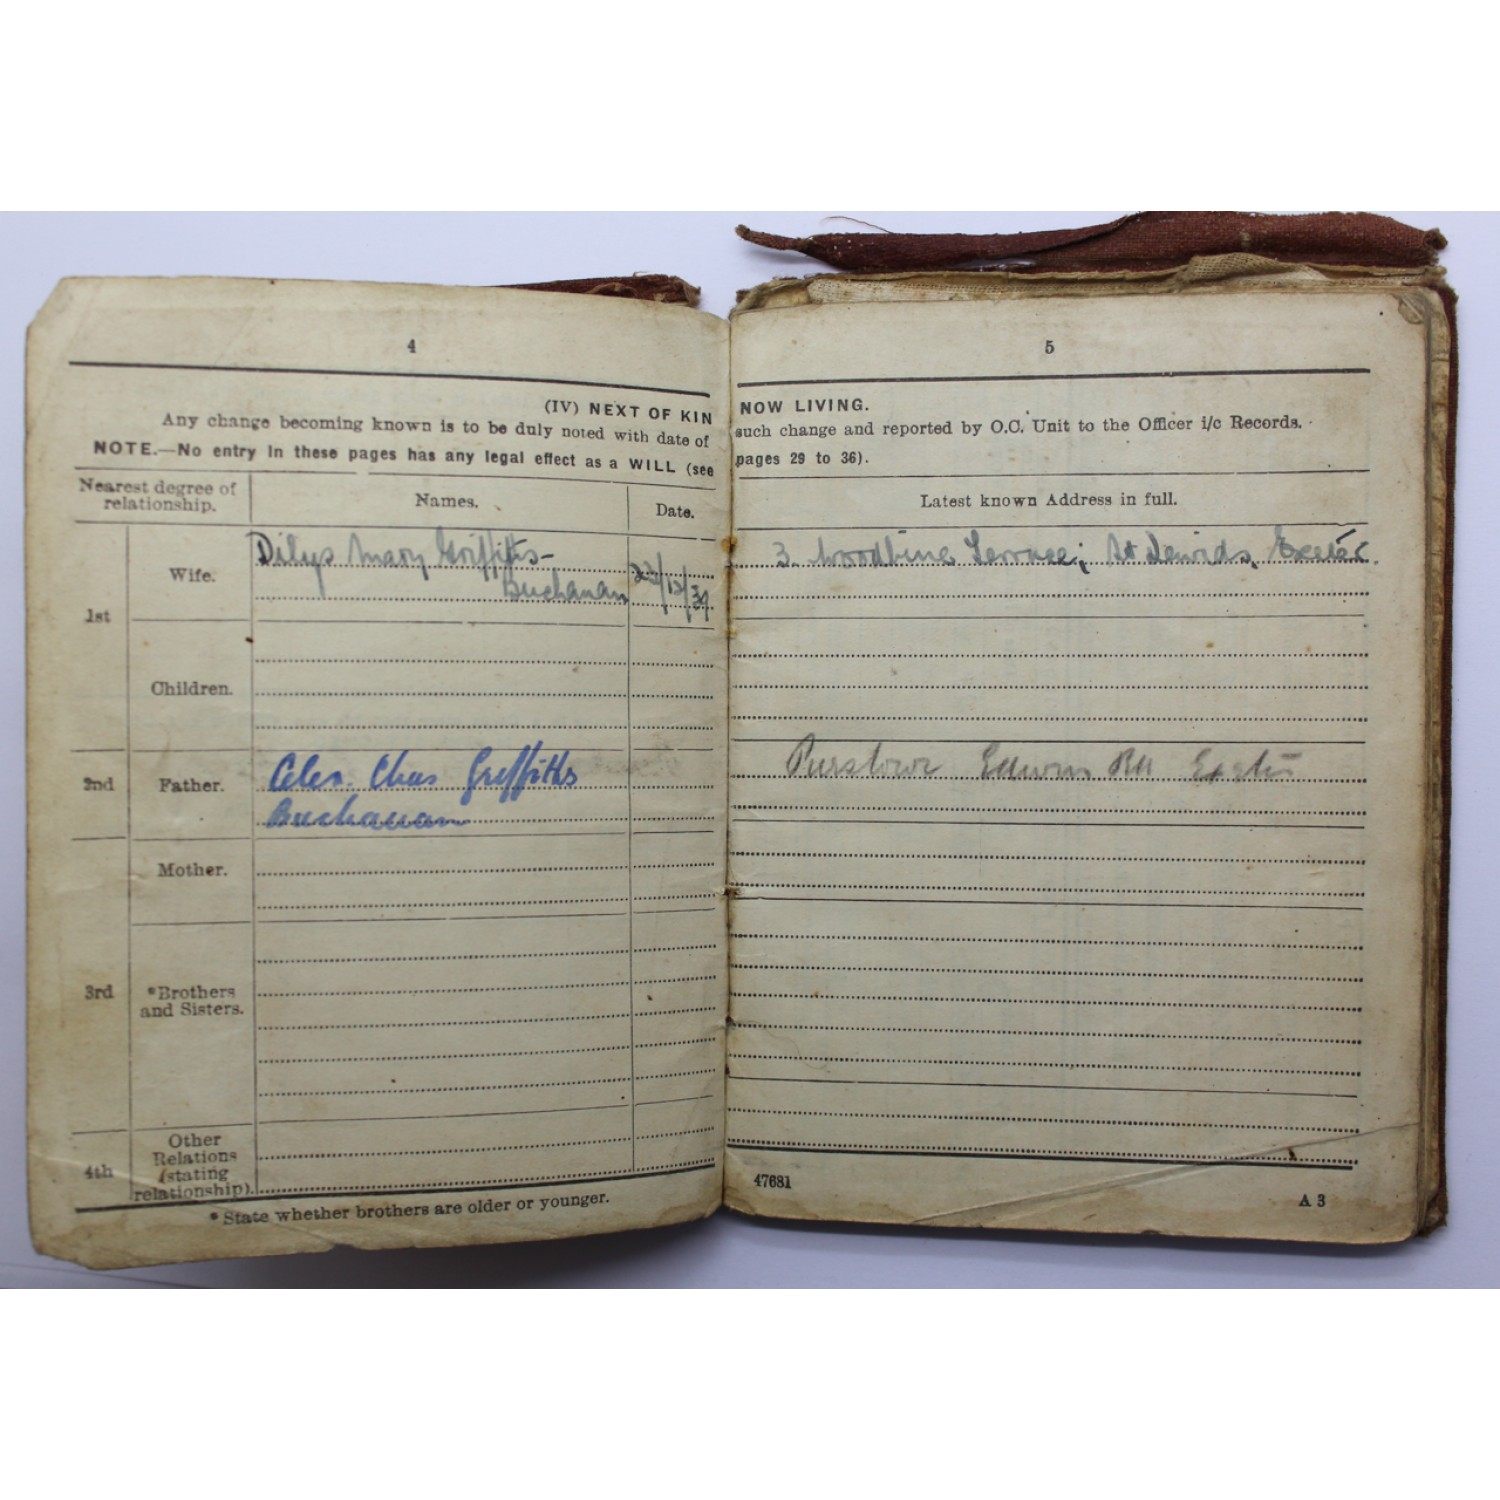 4
(IV) NEXT OF KIN
Any change becoming known is to be duly noted with date of
NOTE.—No entry in these pages has any legal effect as a WILL (see
Nearest degree of
relationship.
Names.
Date.
1st
Wife.
Dilys Mary Griffiths-
Buchanan
23/12/39
Children.
2nd
Father.
Alex. Chas Griffiths
Buchanan
Mother.
3rd
*Brothers
and Sisters.
4th
Other
Relations
(stating
relationship).
* State whether brothers are older or younger.
5
NOW LIVING.
such change and reported by O.C. Unit to the Officer i/c Records.
pages 29 to 36).
Latest known Address in full.
3. Woodbine Terrace, St Davids, Exeter.
Edwin Rd Exeter
47681
A 3